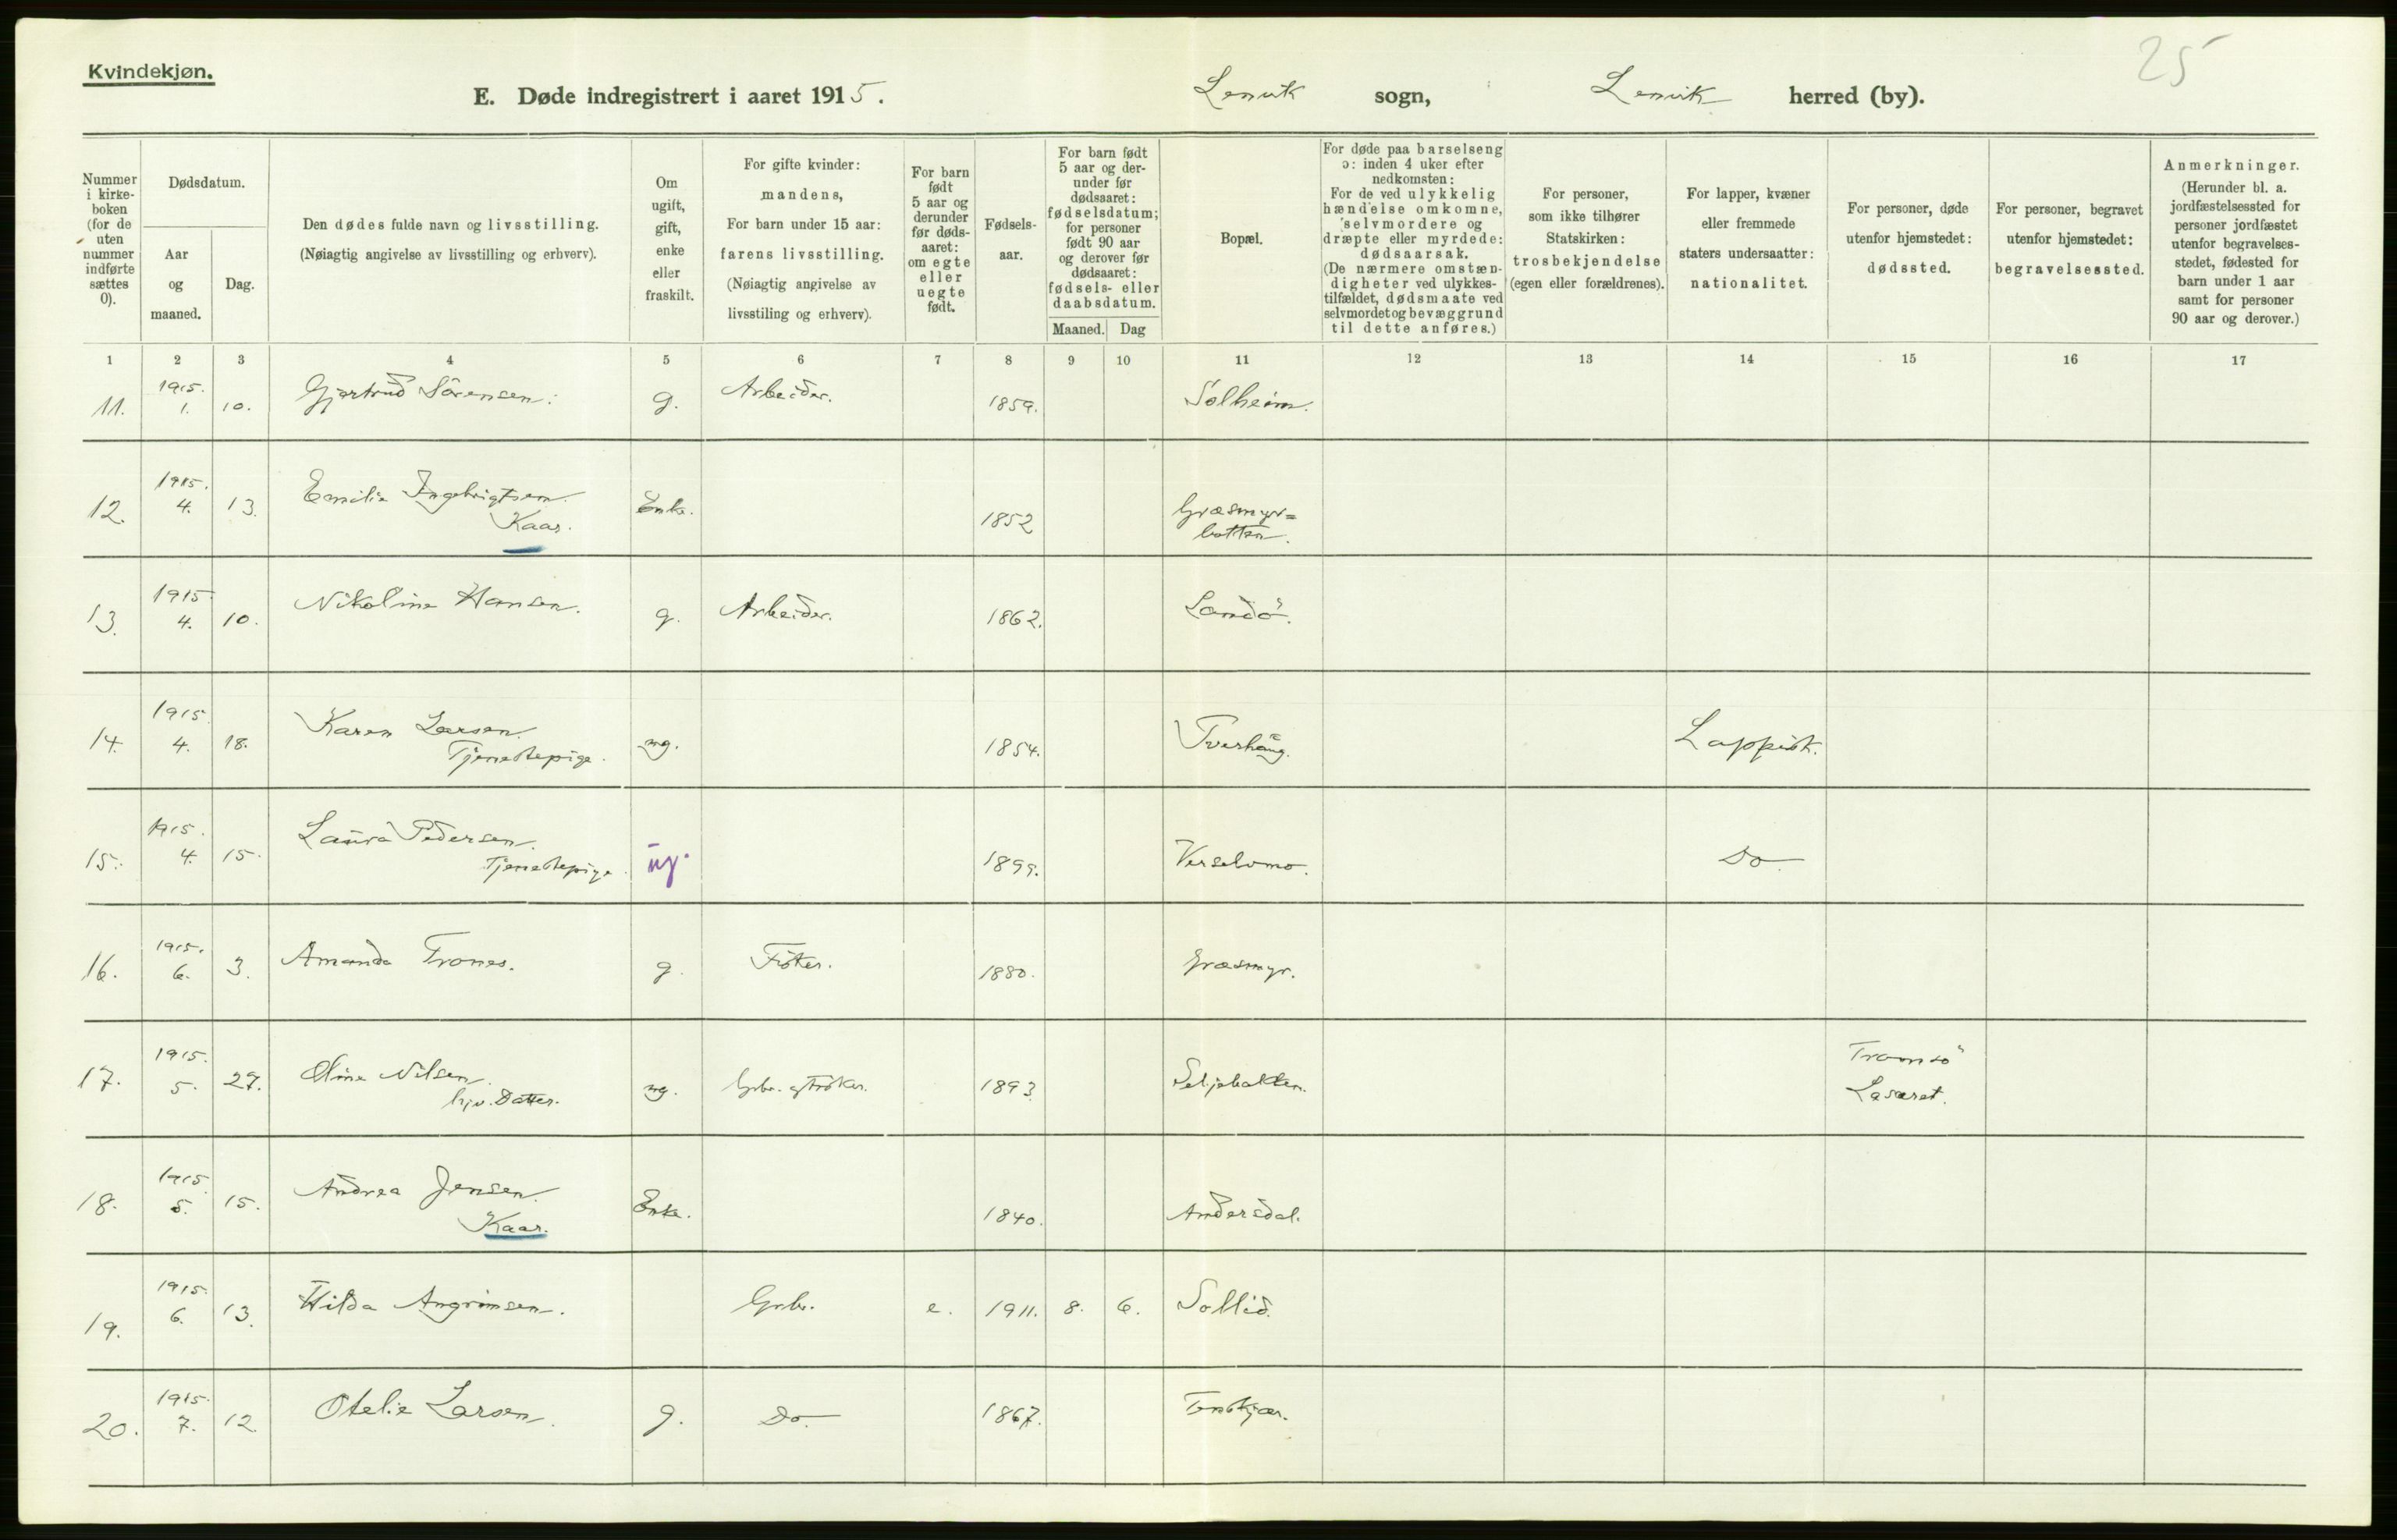 25
Kvindekjøn.
E. Døde indregistrert i aaret 1915. Lenvik sogn, Lenvik herred (by).
Nummer i kirke- boken (for de uten nummer indførte sættes 0).
Dødsdatum.
Aar og maaned.
Dag.
Den dødes fulde navn og livsstilling.
(Nøiagtig angivelse av livsstilling og erhverv).
Om ugift, gift, enke eller fraskilt.
For gifte kvinder: mandens,
For barn under 15 aar: farens livsstilling.
(Nøiagtig angivelse av livsstiling og erhverv).
For barn født 5 aar og derunder før døds- aaret: om egte eller uegte født.
Fødsels- aar.
For barn født 5 aar og der- under før dødsaaret: fødselsdatum; for personer født 90 aar og derover før dødsaaret: fødsels- eller daabsdatum.
Maaned. Dag
Bopæl.
For døde paa barselseng ɔ: inden 4 uker efter nedkomsten:
For de ved ulykkelig hændelse omkomne, selvmordere og dræpte eller myrdede: dødsaarsak.
(De nærmere omstæn- digheter ved ulykkes- tilfældet, dødsmaate ved selvmordet og bevæggrund til dette anføres.)
For personer, som ikke tilhører Statskirken: trosbekjendelse (egen eller forældrenes).
For lapper, kvæner eller fremmede staters undersaatter: nationalitet.
For personer, døde utenfor hjemstedet: dødssted.
For personer, begravet utenfor hjemstedet: begravelsessted.
Anmerkninger.
(Herunder bl. a. jordfæstelsessted for personer jordfæstet utenfor begravelses- stedet, fødested for barn under 1 aar samt for personer 90 aar og derover.)
1 2 3 4 5 6 7 8 9 10 11 12 13 14 15 16 17
11. 1915. 1. 10. Gjertrud Sörensen. g. Arbeider. 1859. Solheim.
12. 1915. 4. 13. Emilie Ingebrigtsen. Enke. 1852 Græsmyr=
Kaar. botten.
13. 1915 4. 10. Nikoline Hansen. g. Arbeider. 1862. Sandö.
14. 1915 4. 18. Karen Larsen. ug. 1854. Tverhaug. Lappisk.
Tjenestepige.
15. 1915. 4. 15. Laura Pedersen. ug. 1899. Do.
Tjenestepige.
16. 1915. 6. 3. Amanda Trones. g. Fisker. 1880. Græsmyr.
17. 1915. 5. 27. Oline Nilsen. ug. Grbr. og Fisker. 1893. Seljebakken. Tromsö
hjv. Datter. Lasaret.
18. 1915 5. 15. Andrea Jensen. Enke. 1840. Andersdal.
Kaar.
19. 1915. 6. 13. Hilda Angrimsen. Grbr. e. 1911. 8. 6. Sollid.
20. 1915. 7. 12 Otelie Larsen. g. Do. 1867. Tenskjær.